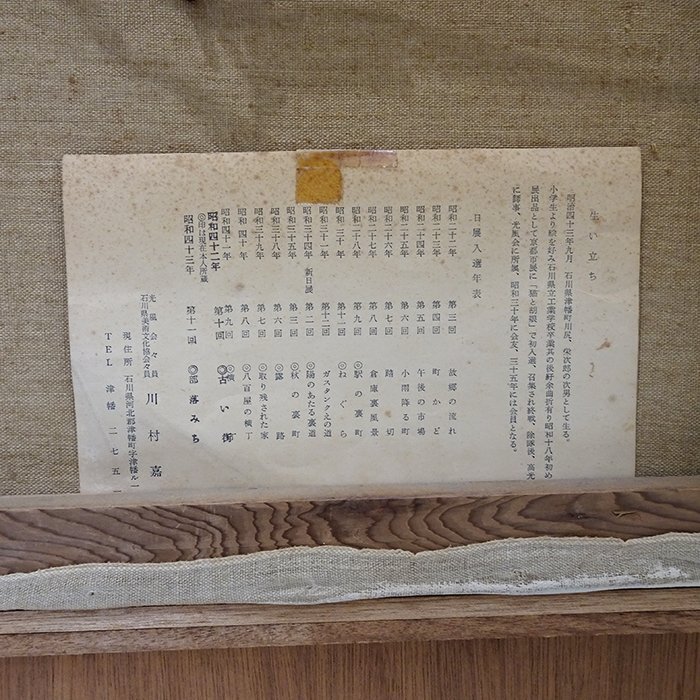 生い立ち
明治四十三年九月 石川県津幡町川尻、栄次郎の次男として生る。
小学生より絵を好み石川県立工業学校卒業其の後紆余曲折有り昭和十八年初め
展出品として京都市展に「猫と胡娘」で初入選、召集され終戦、除隊後、高光
に師事、光風会に所属、昭和三十年に会友、三十五年には会員となる。
日展入選年表
昭和二十二年 第三回 故郷の流れ
昭和二十三年 第四回 町かど
昭和二十四年 第五回 午後の市場
昭和二十五年 第六回 小雨降る町
昭和二十六年 第七回 踏切
昭和二十七年 第八回 倉庫裏風景
昭和二十八年 第九回 ◎駅の裏町
昭和三十年 第十一回 ◎ねぐら
昭和三十一年 第十二回 ガスタンクえの道
昭和三十四年 新日展 第二回 ◎陽のあたる裏道
昭和三十五年 第三回 ◎秋の裏町
昭和三十八年 第六回 ◎露路
昭和三十九年 第七回 ◎取り残された家
昭和四十年 第八回 ◎八百屋の横丁
昭和四十一年 第九回 ◎横
昭和四十二年 第十回 ◎古い街
◎印は現在本人所蔵
昭和四十三年 第十一回 ◎部落みち
光風会々員
石川県美術文化協会々員
川村嘉
現住所 石川県河北郡津幡町字津幡ル一
TEL 津幡 二七五